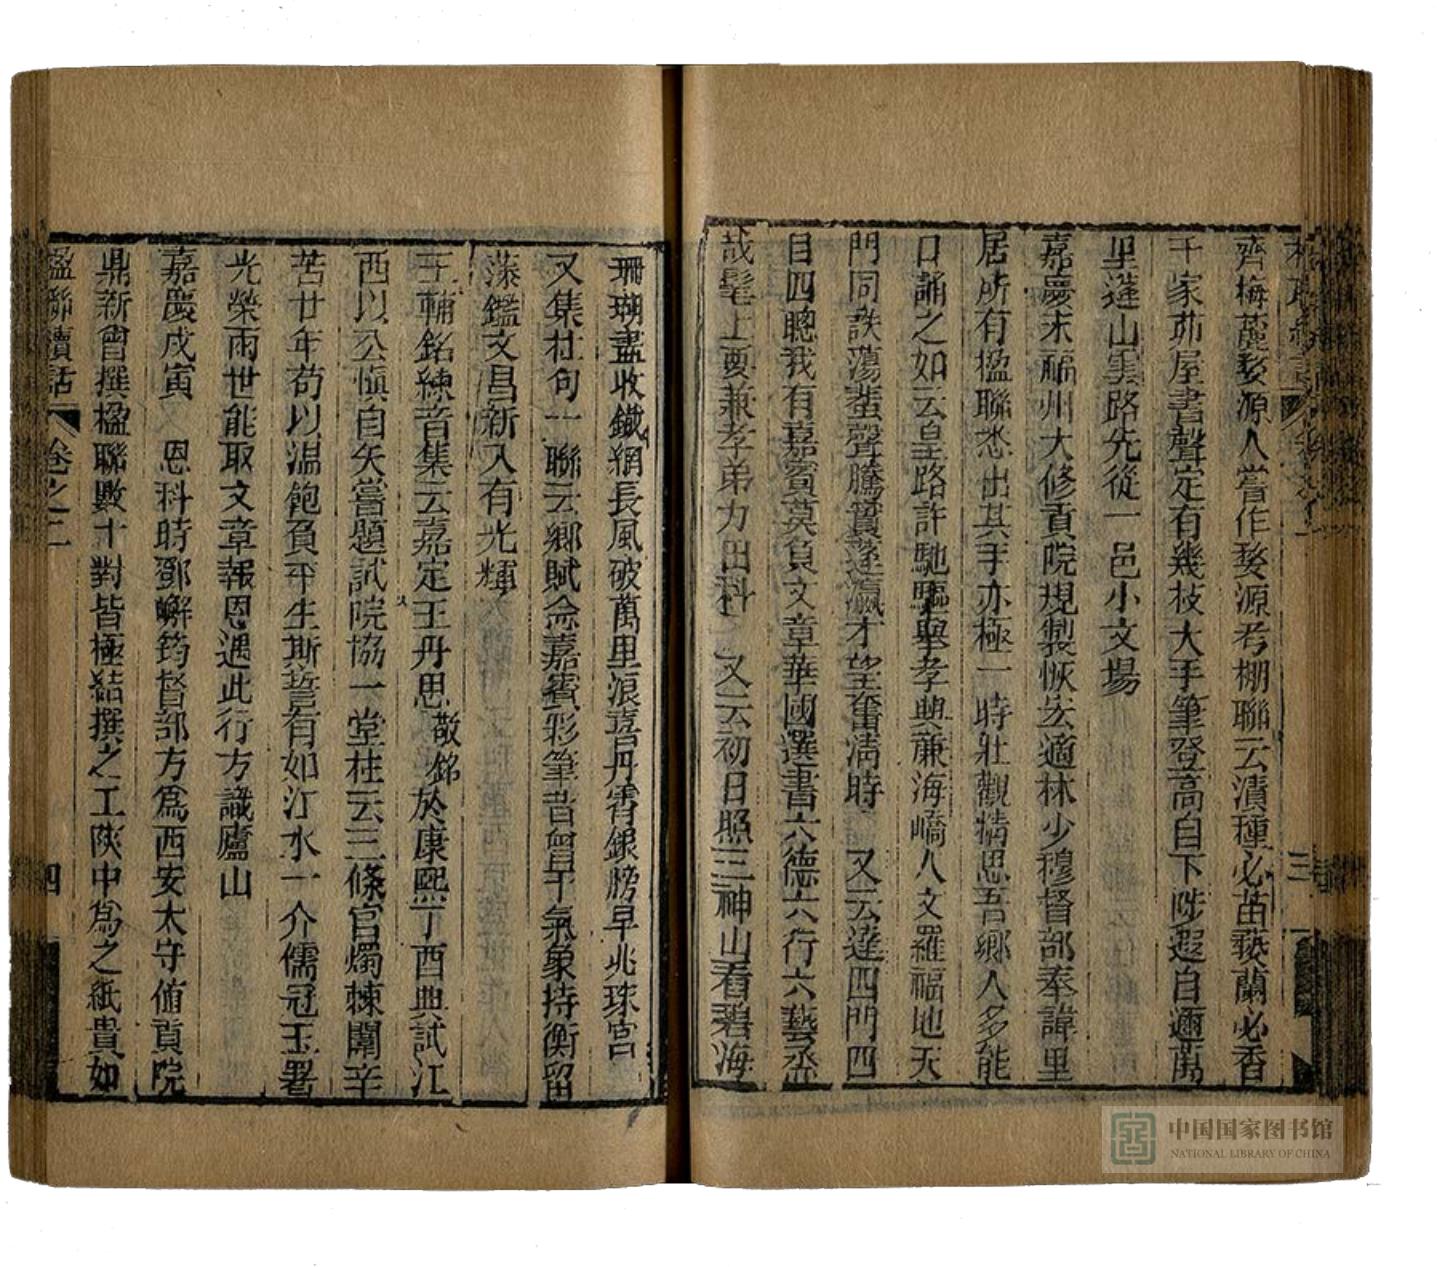 齊梅麓婺源人嘗作婺源考棚聯云漬種必苗藝蘭必香
千家茆屋書聲定有幾枝大手筆登高自下陟遐自邇萬
里蓬山雲路先從一邑小文場
嘉慶末福州大修貢院規製恢宏適林少穆督部奉諱里
居所有楹聯悉出其手亦極一時壯觀猜思吾鄉人多能
口誦之如云皇路許馳驅舉孝興廉海嶠人文羅福地天
門同詄蕩蜚聲騰實蓬瀛才望奮清時 又云達四門四
目四聰我有嘉賓莫負文章華國選書六德六行六藝烝
哉髦士要兼孝弟力田科 又云初日照三神山看碧海
珊瑚盡收鐵網長風破萬里浪喜丹霄銀牓早兆珠宮
又集杜句一聯云鄉賦念嘉賓彩筆昔曾干氣象持衡留
藻鑑文昌新入有光輝
王輔銘練音集云嘉定王丹思敬銘於康熙丁酉典試江
西以公慎自矢嘗題試院協一堂柱云三條官燭棘闈辛
苦廿年苟以溫飽負平生斯誓有如江水一介儒冠玉署
光榮兩世能取文章報恩遇此行方識廬山
嘉慶戊寅 恩科時鄧嶰筠督部方爲西安太守脩貢院
鼎新曾撰楹聯數十對皆極結撰之工陝中爲之紙貴如
楹聯續話 卷之二 四
中国国家图书馆
NATIONAL LIBRARY OF CHINA